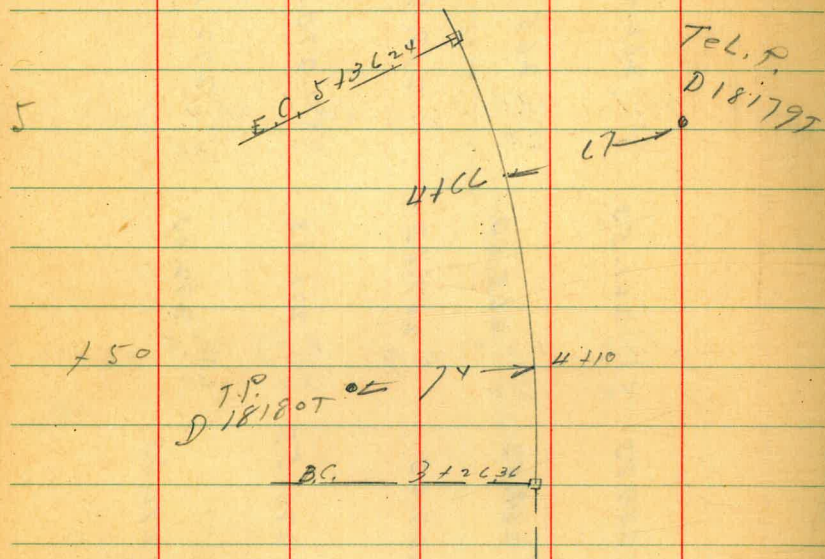 E.C. 5+36 24
Tel. P.
D18179T
5
17
4+66
+50
4+10
T.P.
D18180T
74
B.C. 3+26.36